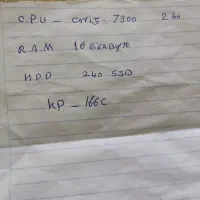 C.P.U - Cori5 - 7300 240
R.A.M 16 GigaByte
HDD 240 SSD
HP - 166C